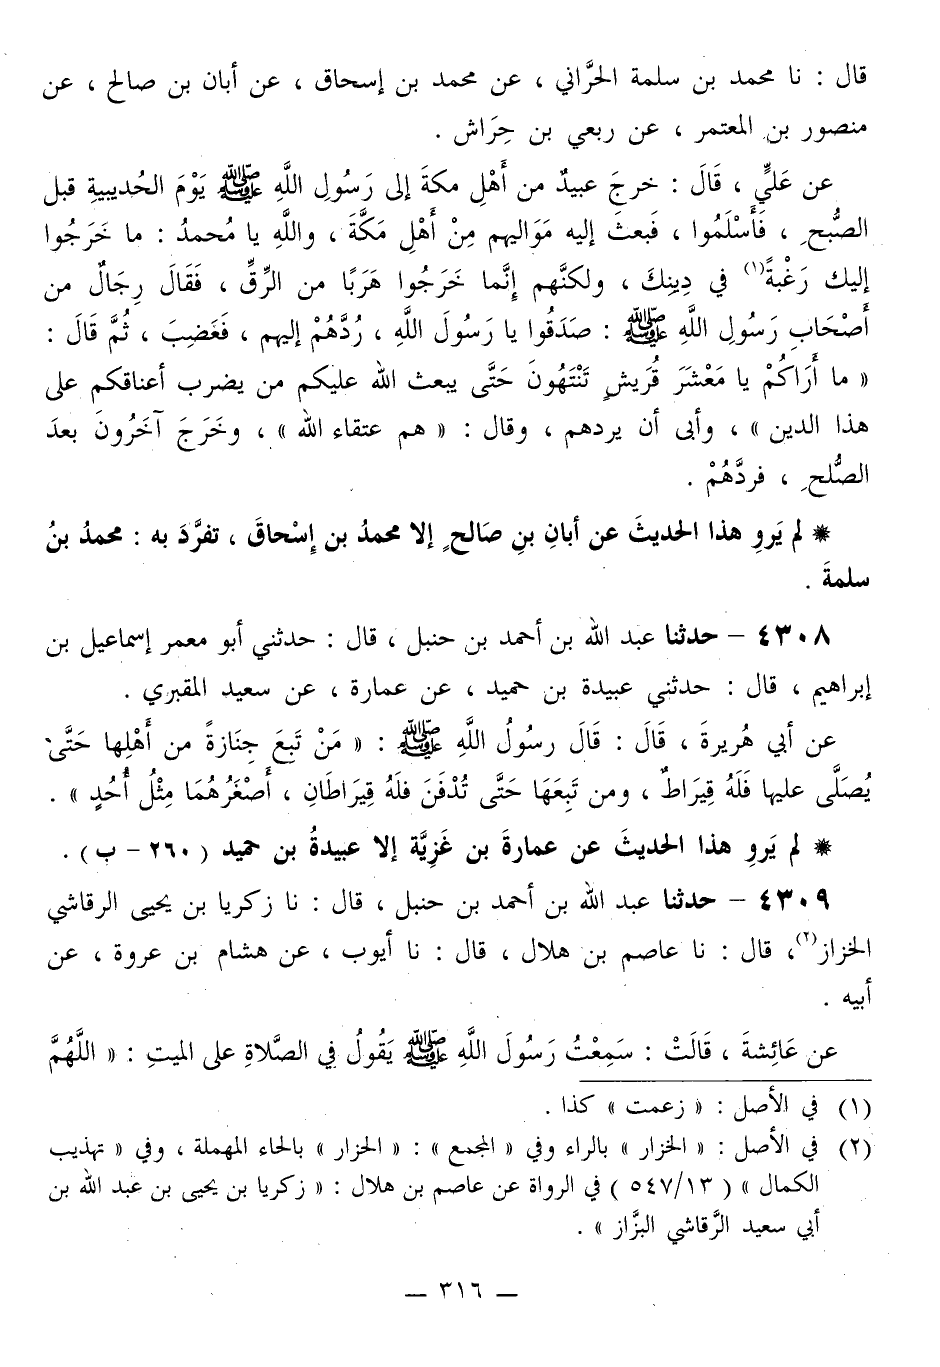 قال : نا محمد بن سلمة الحرَّاني ، عن محمد بن إسحاق ، عن أبان بن صالح ، عن
منصور بن المعتمر ، عن ربعي بن حِرَاش .
عن عَليٍّ ، قَالَ : خرجَ عبيدٌ من أَهْلِ مكةَ إلى رَسُولِ اللَّهِ ﷺ يَوْمَ الحُديبيةِ قبل
الصُّبحِ ، فَأَسْلَمُوا ، فَبعثَ إليه مَوَاليهم مِنْ أَهْلِ مَكَّةَ ، واللَّهِ يا مُحمدُ : ما خَرَجُوا
إليك رَغْبةً(١) في دِينِكَ ، ولكنَّهم إِنَّما خَرَجُوا هَرَبًا من الرِّقِّ ، فَقَالَ رِجَالٌ من
أَصْحَابِ رَسُولِ اللَّهِ ﷺ : صَدَقُوا يا رَسُولَ اللَّهِ ، رُدَّهُمْ إليهم ، فَغَضِبَ ، ثُمَّ قَالَ :
« ما أَرَاكُمْ يا مَعْشَرَ قُرَيشٍ تَنْتَهُونَ حَتَّى يبعث الله عليكم من يضرب أعناقكم على
هذا الدين » ، وأبى أن يردهم ، وقال : « هم عتقاء الله » ، وخَرَجَ آخَرُونَ بعدَ
الصُّلحِ ، فردَّهُمْ .
* لم يَروِ هذا الحديثَ عن أبانِ بنِ صَالحٍ إلا محمدُ بن إِسْحاقَ ، تفرَّدَ به : محمدُ بنُ
سلمةَ .
٤٣٠٨ – حدثنا عبد الله بن أحمد بن حنبل ، قال : حدثني أبو معمر إسماعيل بن
إبراهيم ، قال : حدثني عبيدة بن حميد ، عن عمارة ، عن سعيد المقبري .
عن أبي هُريرةَ ، قَالَ : قَالَ رسولُ اللَّهِ ﷺ : « مَنْ تَبِعَ جِنَازةً من أَهْلِها حَتَّى
يُصَلَّى عليها فَلَهُ قِيَراطٌ ، ومن تَبِعَهَا حَتَّى تُدْفَنَ فلَهُ قِيَراطَانِ ، أَصْغَرُهُمَا مِثْلُ أُحُدٍ » .
* لم يَروِ هذا الحديثَ عن عمارةَ بن غَزِيَّة إلا عبيدةُ بن حميد ( ٢٦٠ – ب ) .
٤٣٠٩ – حدثنا عبد الله بن أحمد بن حنبل ، قال : نا زكريا بن يحيى الرقاشي
الخزاز(٢)، قال : نا عاصم بن هلال ، قال : نا أيوب ، عن هشام بن عروة ، عن
أبيه .
عن عَائِشةَ ، قَالَتْ : سَمِعْتُ رَسُولَ اللَّهِ ﷺ يَقُولُ فِي الصَّلاةِ على الميتِ : « اللَّهُمَّ
(١) في الأصل : « زعمت » كذا .
(٢) في الأصل : « الخزار » بالراء وفي « المجمع » : « الحزار » بالحاء المهملة ، وفي « تهذيب
الكمال » ( ٥٤٧/١٣ ) في الرواة عن عاصم بن هلال : « زكريا بن يحيى بن عبد الله بن
أبي سعيد الرَّقاشي البزَّاز » .
— ٣١٦ —